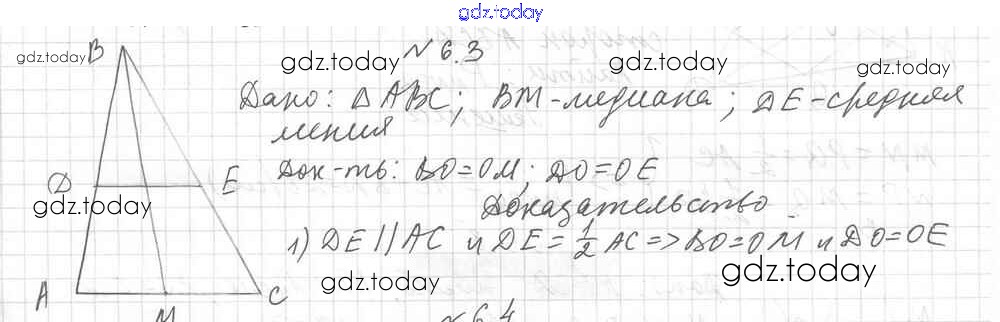 gdz.today
№ 6.3
gdz.today B gdz.today gdz.today gdz.today
Дано: △ABC; BM-медиана; DE-средняя
линия
Док-ть: BO=OM; DO=OE
D E
gdz.today
Доказательство
1) DE||AC и DE=1/2 AC=>BO=OM и DO=OE
gdz.today gdz.today
A M C
№ 6.4